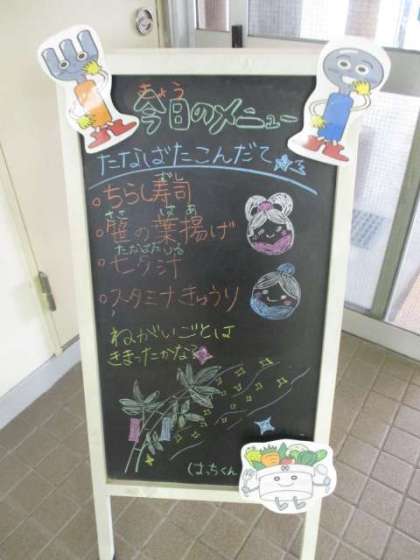 きょう
今日のメニュー
たなばたこんだて
ずし
。ちらし寿司
ささ はあ
。笹の葉揚げ
たなばたじる
。七夕汁
。スタミナきゅうり
ねがいごとは
きまったかな?
はっちくん